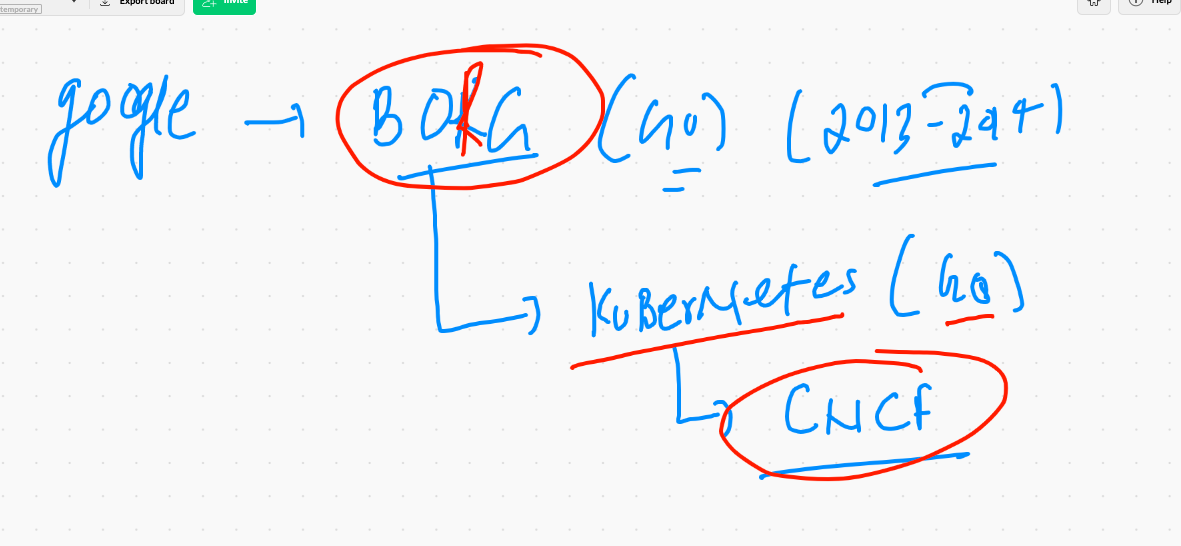 temporary Export board Invite Help
gogle → BORG (Go) (2013-2014)
KuBerNetes (Go)
CNCF